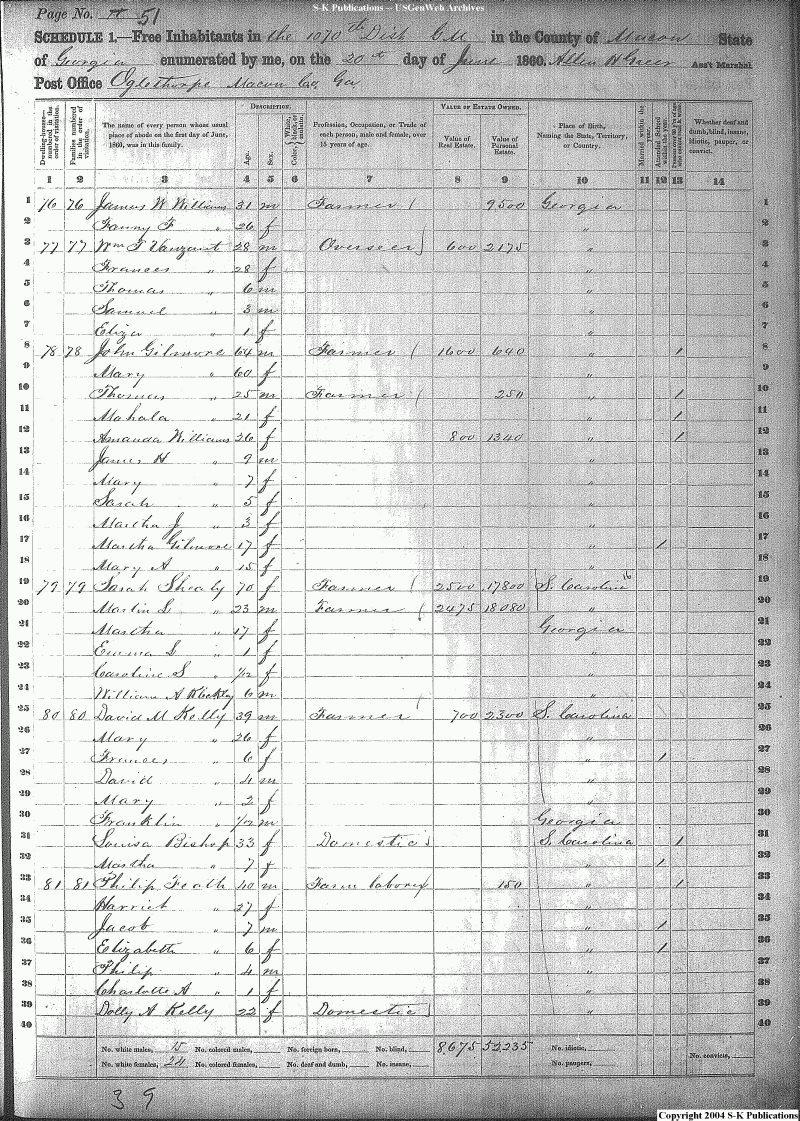 S-K Publications -- USGenWeb Archives
Page No. 51
SCHEDULE 1.—Free Inhabitants in the 1070th Dist G M in the County of Macon State
of Georgia enumerated by me, on the 20th day of June 1860. Allen H Greer Ass't Marshal
Post Office Oglethorpe Macon Co, Ga
Dwelling-houses— numbered in the order of visitation.
Families numbered in the order of visitation.
The name of every person whose usual place of abode on the first day of June, 1860, was in this family.
DESCRIPTION.
Age.
Sex.
Color, White, black, or mulatto.
Profession, Occupation, or Trade of each person, male and female, over 15 years of age.
VALUE OF ESTATE OWNED.
Value of Real Estate.
Value of Personal Estate.
Place of Birth, Naming the State, Territory, or Country.
Married within the year.
Attended School within the year.
Whether deaf and dumb, blind, insane, idiotic, pauper, or convict.
1 2 3 4 5 6 7 8 9 10 11 12 13 14
1 76 76 James W Williams 31 m Farmer 9500 Georgia 1
2 Fanny F " 26 f " 2
3 77 77 Wm T Vanzant 28 m Overseer 600 2175 " 3
4 Frances " 28 f " 4
5 Thomas " 6 m " 5
6 Samuel " 3 m " 6
7 Eliza " 1 f " 7
8 78 78 John Gilmore 64 m Farmer 1600 640 " 1 8
9 Mary " 60 f " 9
10 Thomas " 25 m Farmer 250 " 1 10
11 Mahala " 21 f " 1 11
12 Amanda Williams 26 f 800 1340 " 1 12
13 James H " 9 m " 13
14 Mary " 7 f " 14
15 Sarah " 5 f " 15
16 Martha J " 3 f " 16
17 Martha Gilmore 17 f " 1 17
18 Mary A " 15 f " 18
19 79 79 Sarah Shealy 70 f Farmer 2500 17800 S. Carolina 16 19
20 Martin L " 23 m Farmer 2475 18080 " 20
21 Martha " 17 f Georgia 21
22 Emma L " 1 f " 22
23 Caroline S " 1/12 f " 23
24 William A 6 m " 24
25 80 80 David M Kelly 39 m Farmer 700 2300 S. Carolina 25
26 Mary " 26 f " 26
27 Frances " 6 f " 1 27
28 David " 4 m " 28
29 Mary " 2 f " 29
30 Franklin " 1/12 m Georgia 30
31 Louisa Bishop 33 f Domestic S. Carolina 1 31
32 Martha " 7 f " 1 32
33 81 81 Philip Feath 40 m Farm laborer 150 " 1 33
34 Harriet " 27 f " 34
35 Jacob " 7 m " 1 35
36 Elizabeth " 6 f " 1 36
37 Philip " 4 m " 37
38 Charlotte A " 1 f " 38
39 Dolly A Kelly 22 f Domestic " 39
40 40
No. white males, 15 No. colored males, No. foreign born, No. blind, 8675 52235 No. idiotic,
No. white females, 24 No. colored females, No. deaf and dumb, No. insane, No. paupers, No. convicts,
39
Copyright 2004 S-K Publications